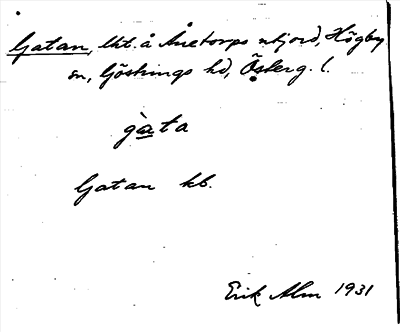 Gatan, lht. å Åretorps utjord, Högby
sn, Göstrings hd, Österg. l.
gàta
Gatan kb.
Erik Alm 1931